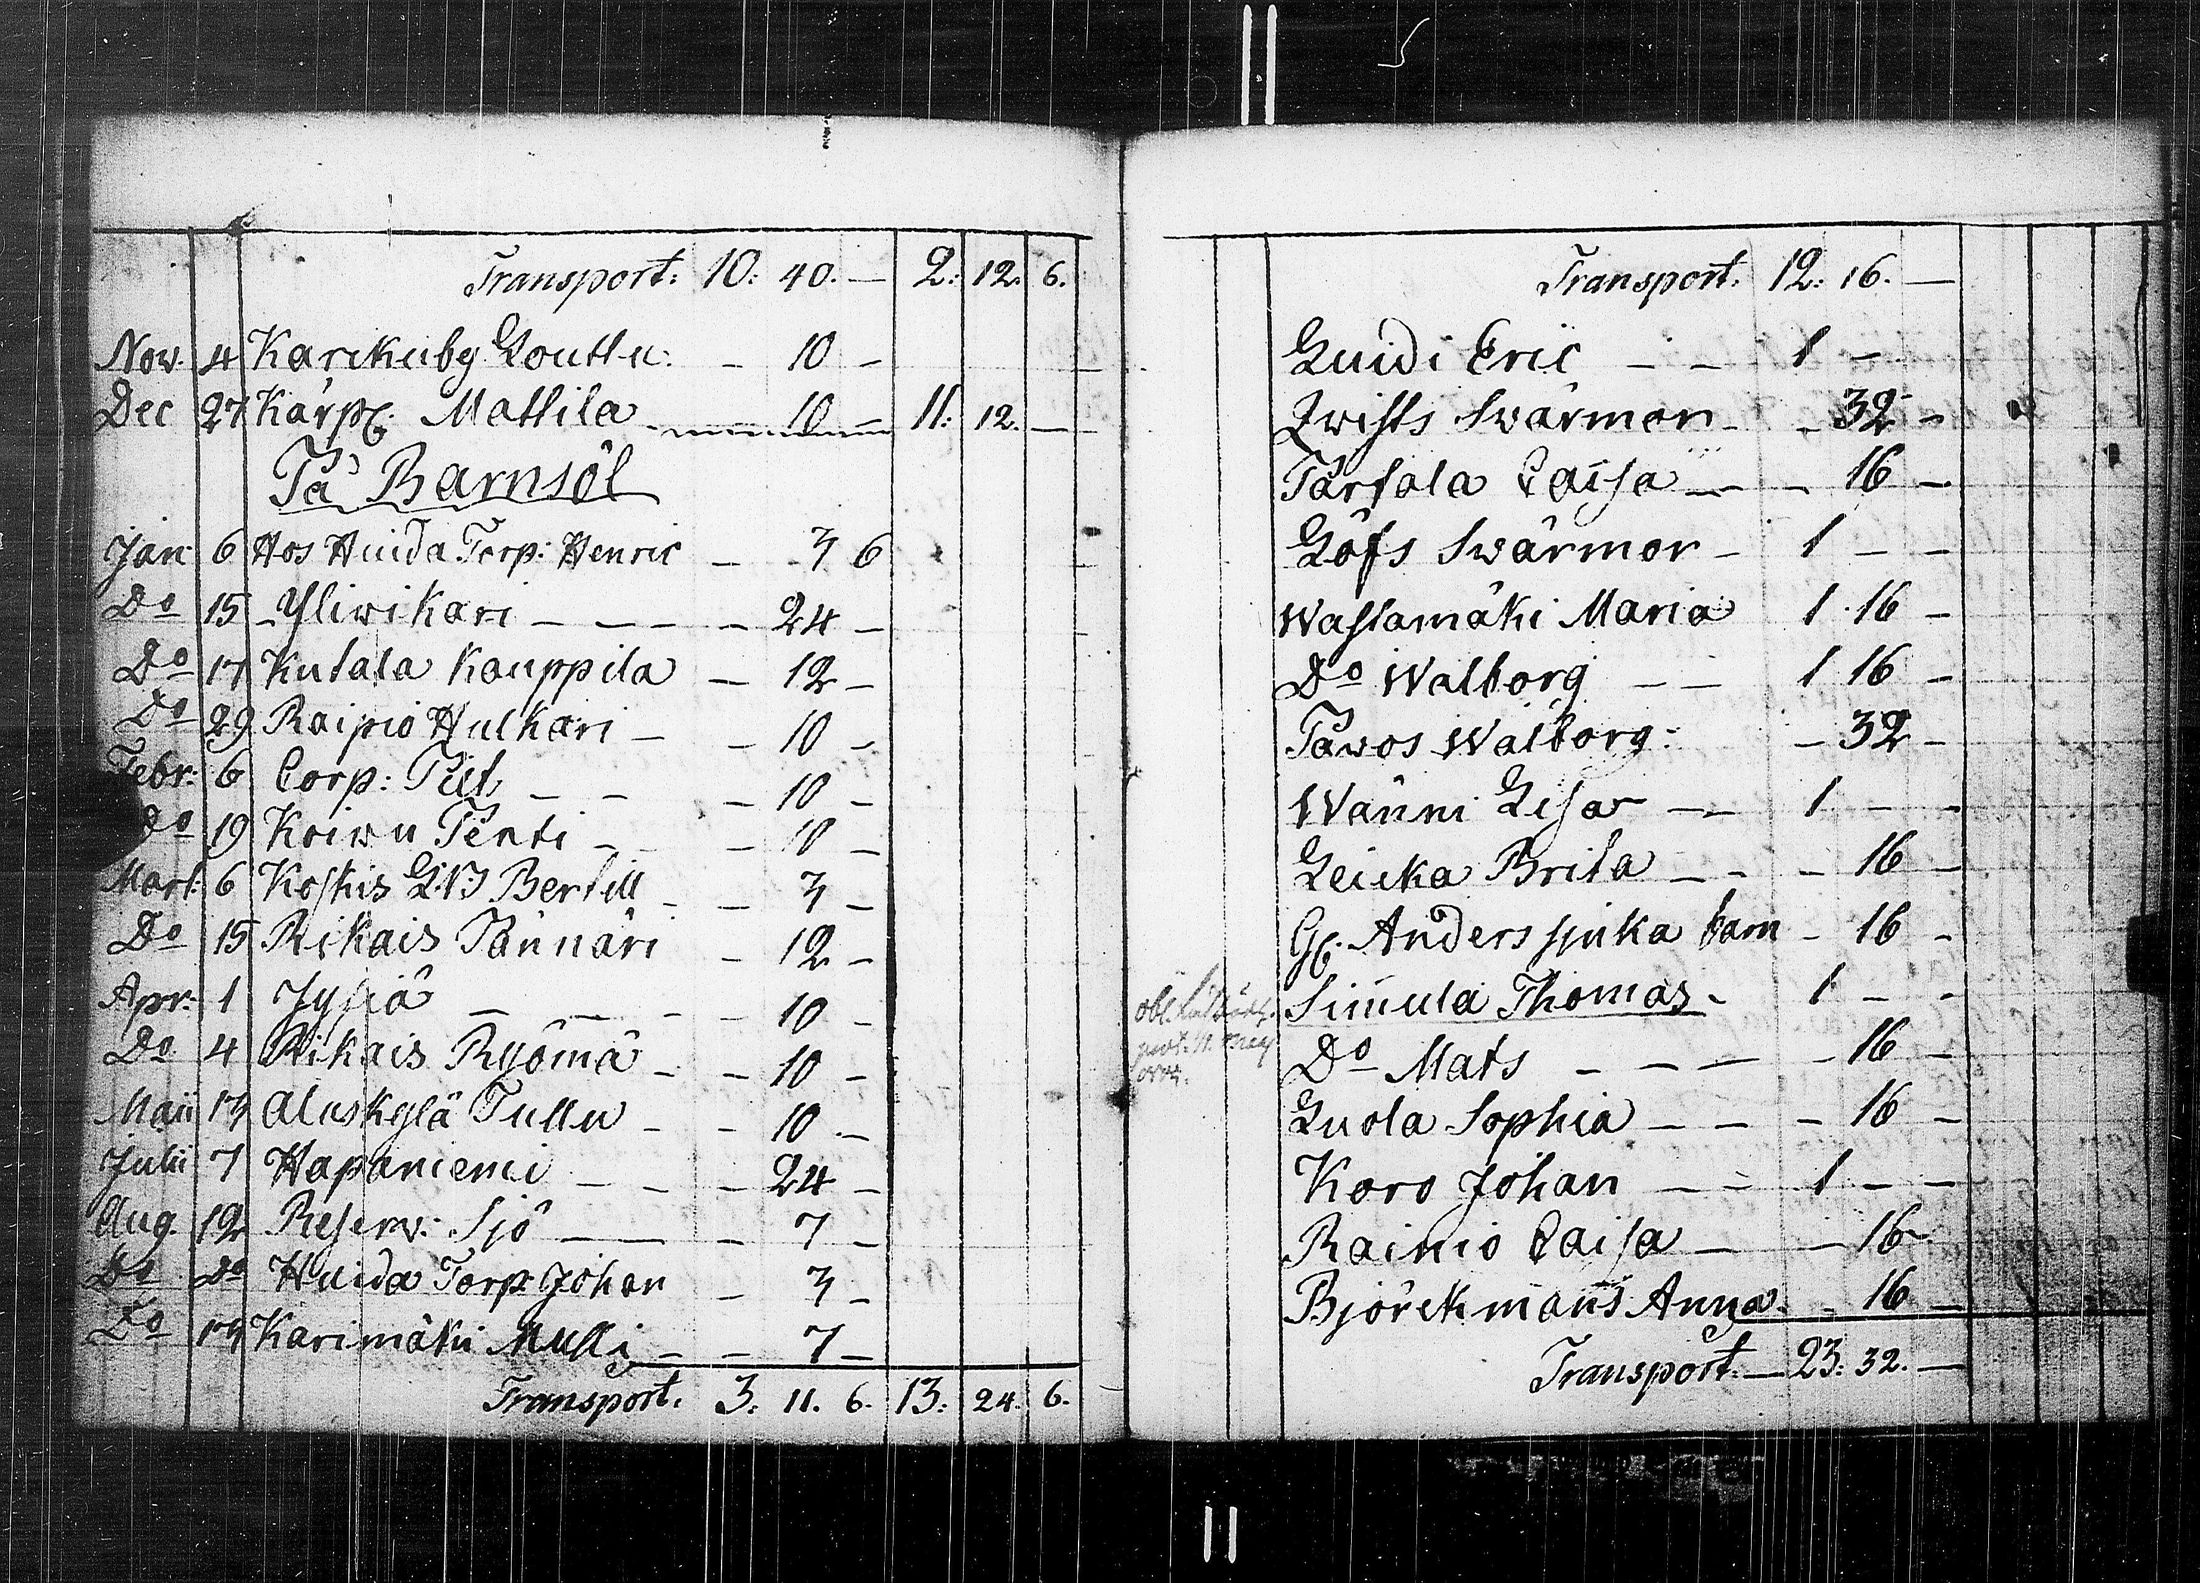 Transport: 10: 40. — 2: 12. 6.
Nov. 4 Karckuby Gouttu: — 10 —
Dec 27 Kärp. Mattila — 10 — 11: 12. —
På Barnsöl
Jan: 6 Hos Huida Torp: Henric — 3 6
Do 15 Yliwikari — — — 24 —
Do 17 Kutala Kauppila — 12 —
Do 29 Raipio Hulkari — — 10 —
Febr: 6 Corp: Pilt — — — 10 —
Do 19 Koiwu Pentti — — 10 —
Mart: 6 Koskis Bertill — — 3 —
Do 15 Rikais Pännäri — 12 —
Apr: 1 Jyljä — — — 10 —
Do 4 Rikais Ryömä — — 10 —
Maii 13 Aluskylä Tullu — — 10 —
Julii 7 Hapaniemi — — — 24 —
Aug. 12 Reserv: Sjö — — 7 —
Do Do Huida Torp: Johan — 3 —
Do 13 Karimäki Mulli — — 7 —
Transport: 3: 11. 6. 13: 24. 6.
Transport. 12: 16. —
Luidi Eric — — 1 —
Qwists Swärmor — — 32 —
Pärtala Caisa — — 16 —
Löfs Swärmor — 1 — —
Wastamäki Maria 1 16 —
Do Walborg — — 1 16 —
Pawos Walborg: — 32 —
Wänni Lisa — — 1 — —
Leicka Brita — — — 16 —
G. Anders sjuka barn — 16 —
Simula Thomas — 1 — —
Do Mats — — — — 16 —
Luola Sophia — — — 16 —
Koro Johan — — 1 — —
Rainio Caisa — — 16 —
Björckmans Anna — — 16 —
Transport: — 23: 32. —